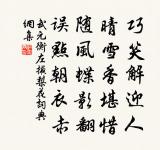 巧笑解迎人
晴雪香堪惜
随風蝶影翻
誤點朝衣赤
武元衡左掖梨花詞典
網集